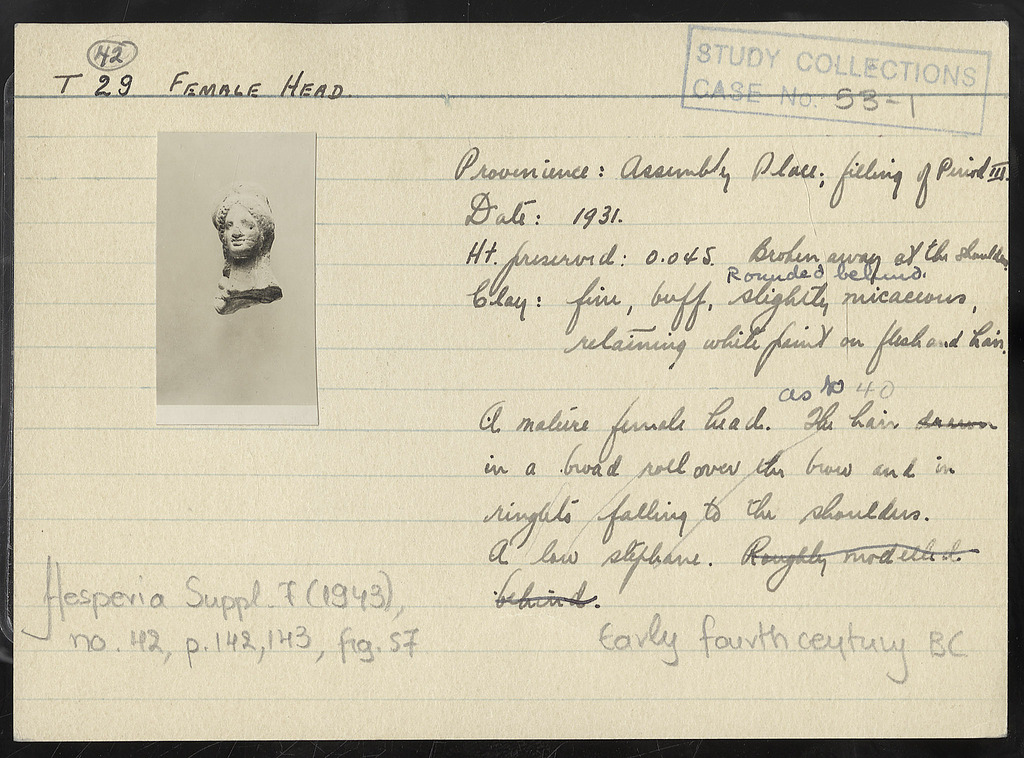 42
T 29 FEMALE HEAD.
STUDY COLLECTIONS
CASE No. 53-1
Provenience: Assembly Place; filling of Period III.
Date: 1931.
Ht. preserved: 0.045. Broken away at the shoulders
Rounded behind.
Clay: fine, buff, slightly micaceous,
retaining white paint on flesh and hair.
as No 40
A mature female head. The hair drawn
in a broad roll over the brow and in
ringlets falling to the shoulders.
A low stephane. Roughly modelled
behind.
Hesperia Suppl. 7 (1943),
no. 42, p. 142, 143, fig. 57
Early fourth century BC